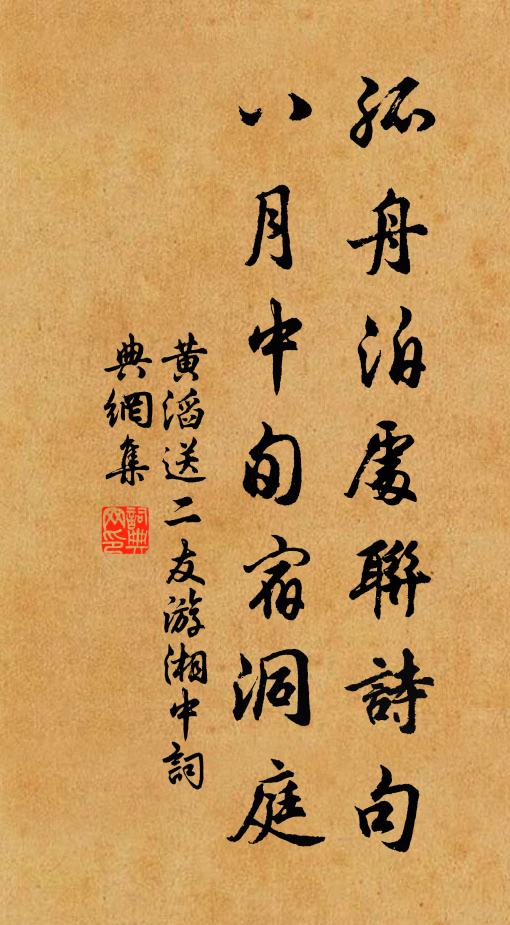 孤舟泊處聯詩句
八月中旬宿洞庭
黄滔送二友游湘中詞
典網集